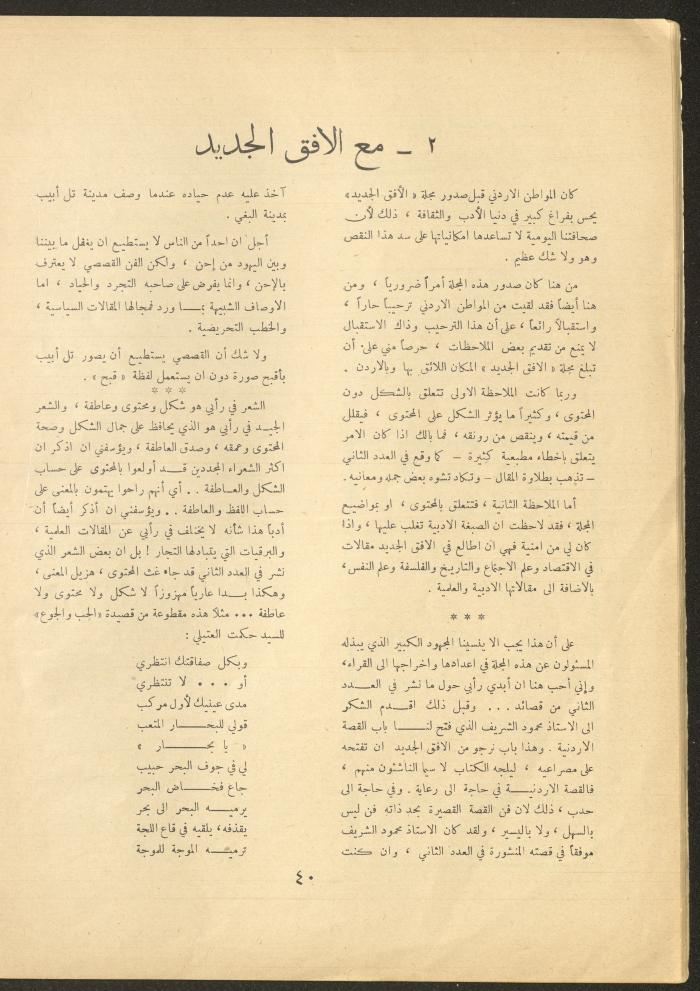 ٢ ـ مع الافق الجديد
كان المواطن الاردني قبل صدور مجلة « الأفق الجديد»
يحس بفراغ كبير في دنيا الأدب والثقافة ، ذلك لأن
صحافتنا اليومية لا تساعدها امكانياتها على سد هذا النقص
وهو ولا شك عظيم .
من هنا كان صدور هذه المجلة أمراً ضرورياً ، ومن
هنا أيضاً فقد لقيت من المواطن الاردني ترحيباً حاراً ،
واستقبالاً رائعاً ، على أن هذا الترحيب وذاك الاستقبال
لا يمنع من تقديم بعض الملاحظات ، حرصاً مني على أن
تبلغ مجلة « الافق الجديد » المكان اللائق بها وبالاردن .
وربما كانت الملاحظة الاولى تتعلق بالشكل دون
المحتوى ، وكثيراً ما يؤثر الشكل على المحتوى ، فيقلل
من قيمته ، وينقص من رونقه ، فما بالك اذا كان الامر
يتعلق باخطاء مطبعية كثيرة – كما وقع في العدد الثاني
– تذهب بطلاوة المقال – وتكاد تشوه بعض جمله ومعانيه .
أما الملاحظة الثانية ، فتتعلق بالمحتوى ، او بمواضيع
المجلة ، فقد لاحظت ان الصبغة الادبية تغلب عليها ، واذا
كان لي من امنية فهي ان اطالع في الافق الجديد مقالات
في الاقتصاد وعلم الاجتماع والتاريخ والفلسفة وعلم النفس ،
بالاضافة الى مقالاتها الادبية والعلمية .
* * *
على أن هذا يجب الا ينسينا المجهود الكبير الذي يبذله
المسئولون عن هذه المجلة في اعدادها واخراجها الى القراء،
وإني أحب هنا ان أبدي رأيي حول ما نشر في العدد
الثاني من قصائد ... وقبل ذلك اقدم الشكر
الى الاستاذ محمود الشريف الذي فتح لنا باب القصة
الاردنية . وهذا باب نرجو من الافق الجديد ان تفتحه
على مصراعيه ، ليلجه الكتاب لا سيما الناشئون منهم ،
فالقصة الاردنية في حاجة الى رعاية . وفي حاجة الى
حدب ، ذلك لان فن القصة القصيرة بحد ذاته فن ليس
بالسهل ، ولا باليسير ، ولقد كان الاستاذ محمود الشريف
موفقاً في قصته المنشورة في العدد الثاني ، وان كنت
آخذ عليه عدم حياده عندما وصف مدينة تل أبيب
بمدينة البغي .
أجل ان احداً من الناس لا يستطيع ان يغفل ما بيننا
وبين اليهود من إحن ، ولكن الفن القصصي لا يعترف
بالإحن ، وانما يفرض على صاحبه التجرد والحياد ، اما
الاوصاف الشبيهة بما ورد فمجالها المقالات السياسية ،
والخطب التحريضية .
ولا شك أن القصصي يستطيع أن يصور تل أبيب
بأقبح صورة دون ان يستعمل لفظة « قبح » .
* * *
الشعر في رأيي هو شكل ومحتوى وعاطفة ، والشعر
الجيد في رأيي هو الذي يحافظ على جمال الشكل وصحة
المحتوى وعمقه ، وصدق العاطفة ، ويؤسفني ان اذكر ان
اكثر الشعراء المجددين قد أولعوا بالمحتوى على حساب
الشكل والعاطفة .. أي أنهم راحوا يهتمون بالمعنى على
حساب اللفظ والعاطفة .. ويؤسفني ان أذكر أيضاً أن
أدباً هذا شأنه لا يختلف في رأيي عن المقالات العلمية ،
والبرقيات التي يتبادلها التجار ! بل ان بعض الشعر الذي
نشر في العدد الثاني قد جاء غث المحتوى ، هزيل المعنى ،
وهكذا بدا عارياً مهزوزاً لا شكل ولا محتوى ولا
عاطفة ... مثلا هذه مقطوعة من قصيدة «الحب والجوع»
للسيد حكمت العتيلي :
وبكل صفاقتك انتظري
أو ... لا تنتظري
مدى عينيك لأول مركب
قولي للبحار المتعب
« يا بحار »
لي في جوف البحر حبيب
جاع فخاض البحر
يرميه البحر الى بحر
يقذفه، يلقيه في قاع اللجة
ترميه الموجة للموجة
٤٠